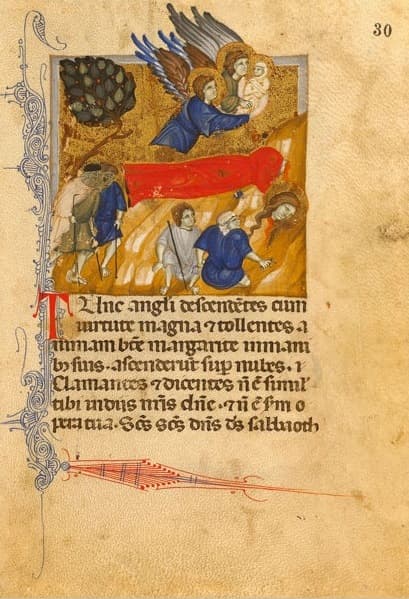 30
Tunc angli descendētes cum
uirtute magna ⁊ tollentes a
nimam bēē margarite in man
bꝫ suis. ascenderūt sup nubes. ⁊
Clamantes ⁊ dicentes nē simil'
tibi in diis n̄ris dn̄e. ⁊ nē sm̄ o
pera tua. Scs̄ scs̄ dn̄s ds̄ sabbaoth